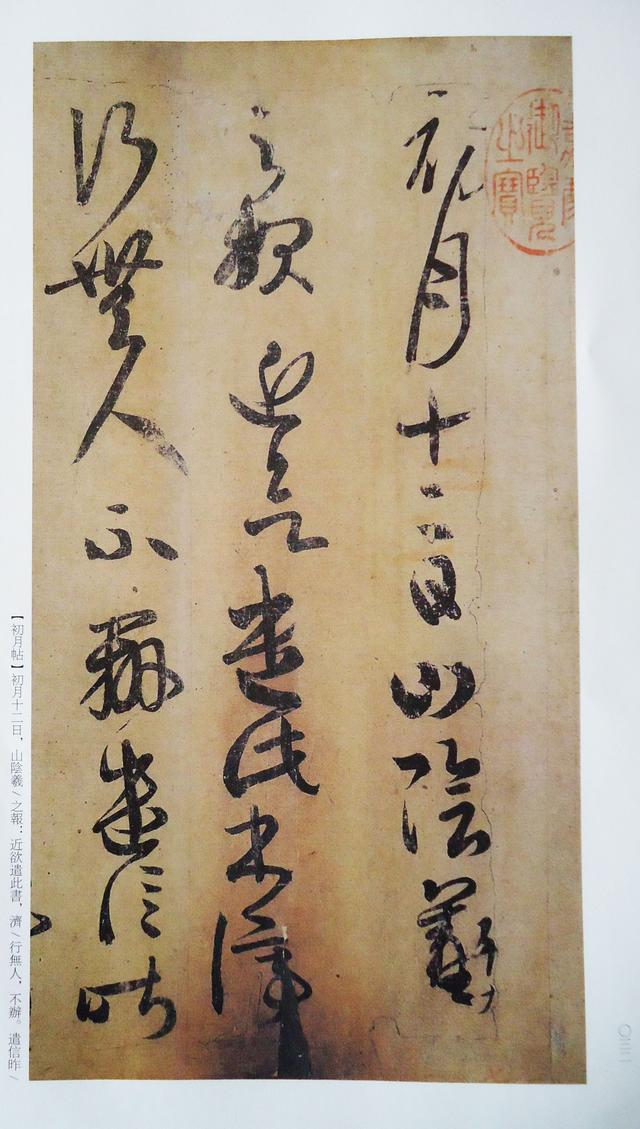 嘉慶
御覽
之寶
初月十二日山陰羲
之報近欲遣此書濟
行無人不辦遣信昨
【初月帖】初月十二日，山陰羲/之報：近欲遣此書，濟/行無人，不辦。遣信昨/